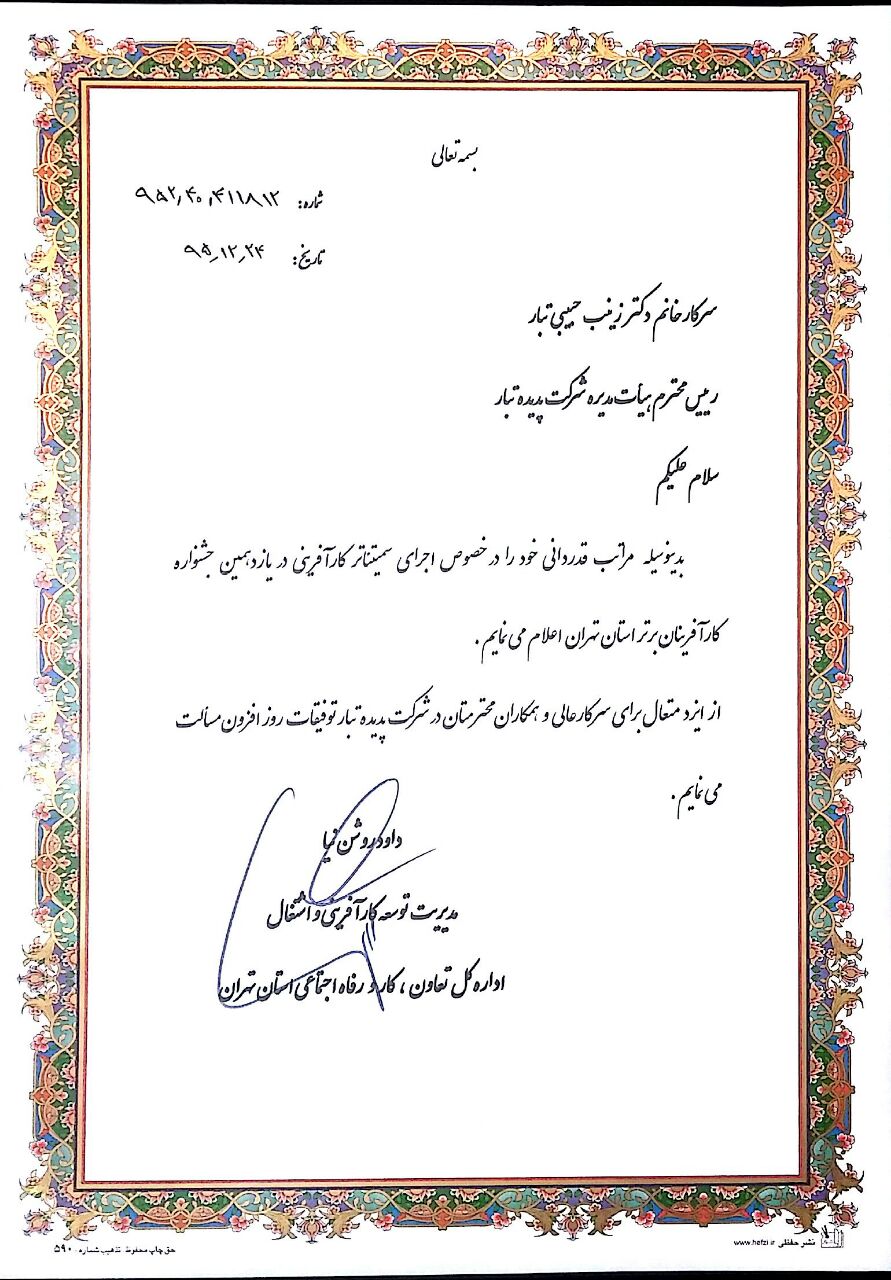 بسمه تعالی
شماره: ۹۵۲٫۴۰٫۴۱۱۸۱۲
تاریخ: ۹۵٫۱۲٫۲۴
سرکار خانم دکتر زینب حبیبی تبار
رییس محترم هیات مدیره شرکت پدیده تبار
سلام علیکم
بدینوسیله مراتب قدردانی خود را در خصوص اجرای سمیتناتر کارآفرینی در یازدهمین جشنواره
کارآفرینان برتر استان تهران اعلام می نمایم .
از ایزد متعال برای سرکار عالی و همکاران محترمتان در شرکت پدیده تبار توفیقات روز افزون مسألت
می نمایم .
داود روشن نیا
مدیریت توسعه کارآفرینی و اشتغال
اداره کل تعاون ، کار و رفاه اجتماعی استان تهران
نشر حفظی www.hefzi.ir
حق چاپ محفوظ تذهیب شماره ۵۹۰